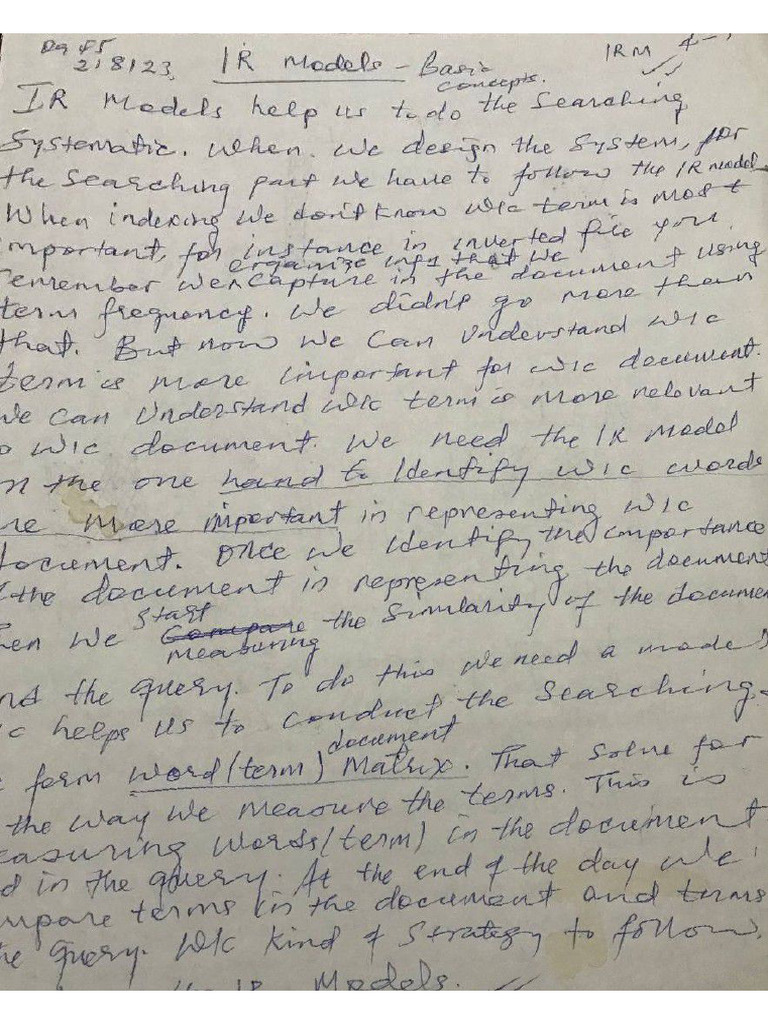 2/8/23 IR Models - Basic concepts. IRM
IR Models help us to do the Searching
Systematic. When we design the System, for
the searching part we have to follow the IR model
When indexing we don't know wic term is most
mportant, for instance in inverted file you
emember we organize info that we capture in the document using
term frequency. We didn't go more than
that. But now we can understand wic
term is more important for wic document.
We can understand wic term is more relevant
o wic document. We need the IR model
n the one hand to Identify wic words
re more important in representing wic
document. Once we Identify the importance
the document in representing the document
hen we start measuring the similarity of the documen
nd the query. To do this we need a model
c helps us to conduct the searching.
form word (term) document Matrix. That solve for
the way we measure the terms. This is
easuring words (term) in the document
d in the query. At the end of the day we
mpare terms in the document and terms
he query. Wic kind of strategy to follow.
the IR Models.